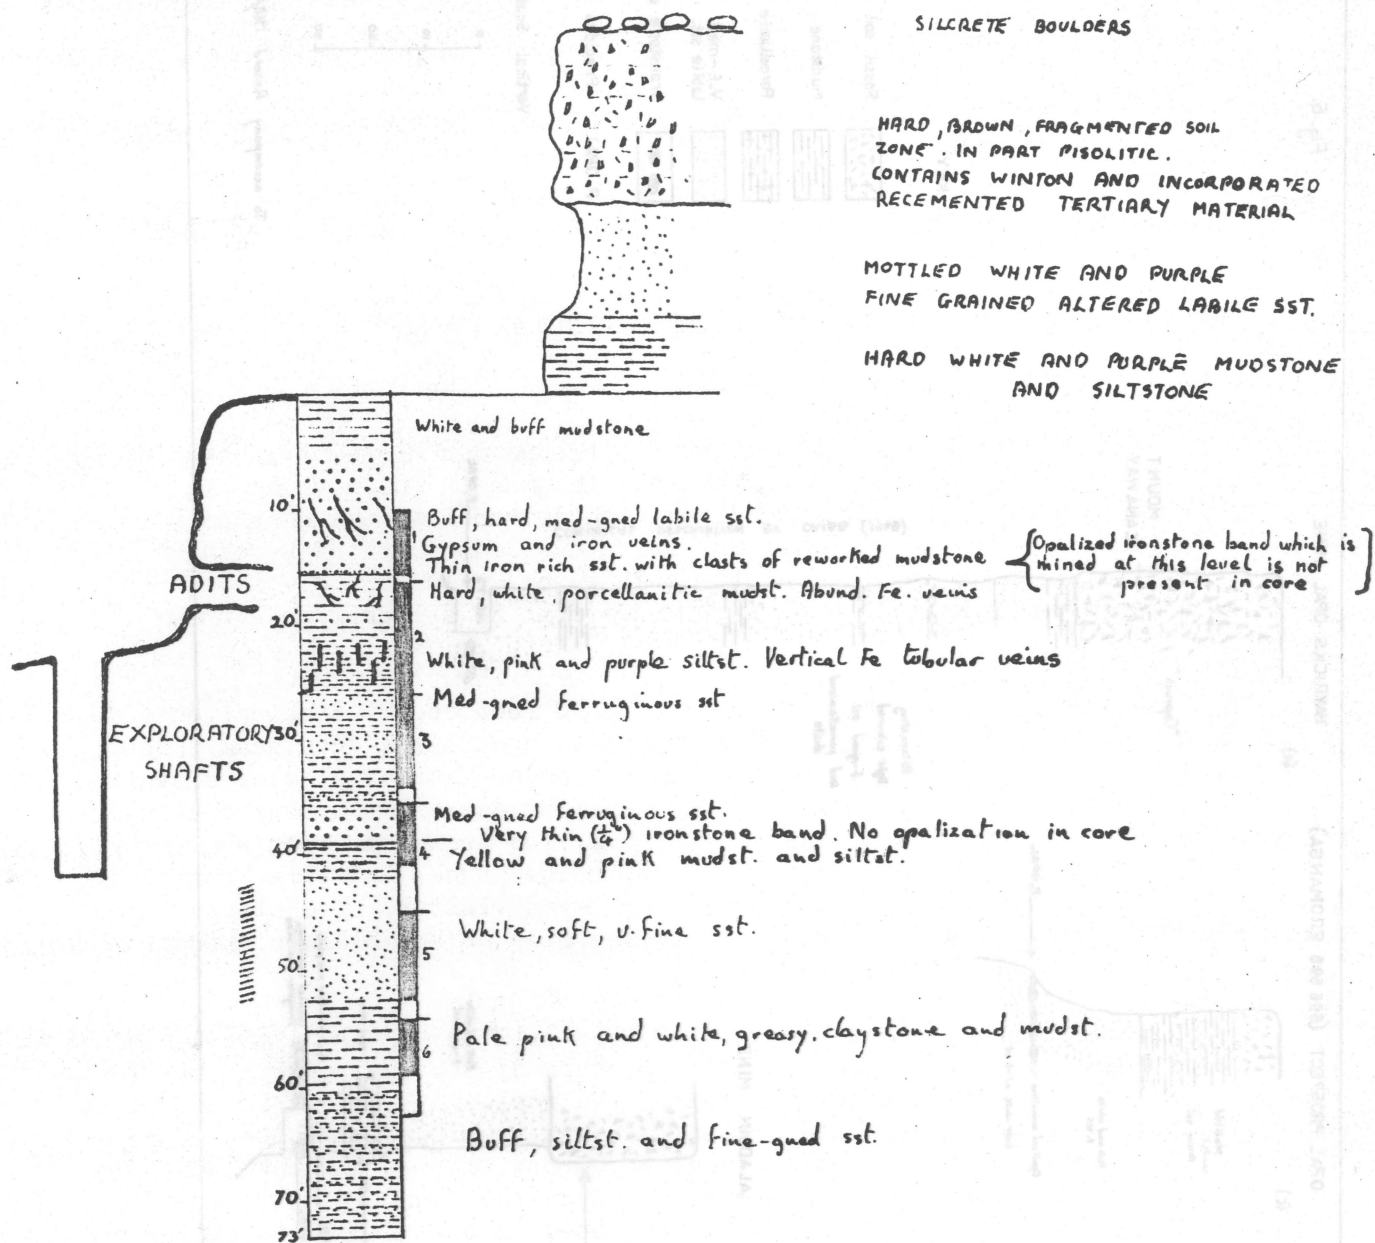 SILCRETE BOULDERS
HARD, BROWN, FRAGMENTED SOIL
ZONE. IN PART PISOLITIC.
CONTAINS WINTON AND INCORPORATED
RECEMENTED TERTIARY MATERIAL
MOTTLED WHITE AND PURPLE
FINE GRAINED ALTERED LABILE SST.
HARD WHITE AND PURPLE MUDSTONE
AND SILTSTONE
White and buff mudstone
10'
Buff, hard, med-gned labile sst.
1
Gypsum and iron veins.
Thin iron rich sst. with clasts of reworked mudstone
{Opalized ironstone band which is
mined at this level is not
present in core}
ADITS
Hard, white, porcellanitic mudst. Abund. Fe. veins
20'
2
White, pink and purple siltst. Vertical Fe tubular veins
Med-gned Ferruginous sst
EXPLORATORY
SHAFTS
30'
3
Med-gned Ferruginous sst.
Very thin (¼") ironstone band. No opalization in core
40'
4
Yellow and pink mudst. and siltst.
White, soft, v. fine sst.
5
50'
Pale pink and white, greasy, claystone and mudst.
6
60'
Buff, siltst. and fine-gned sst.
70'
73'